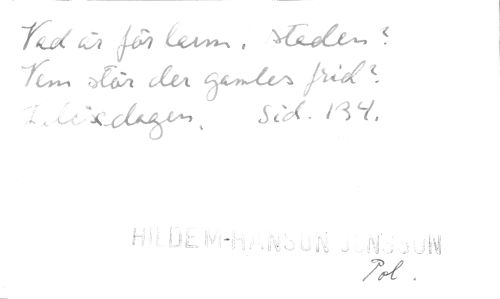 Vad är för larm, staden?
Vem stör der gamles frid?
Sid. 134.
HILDEM-HANSON JONSSON
Pol.